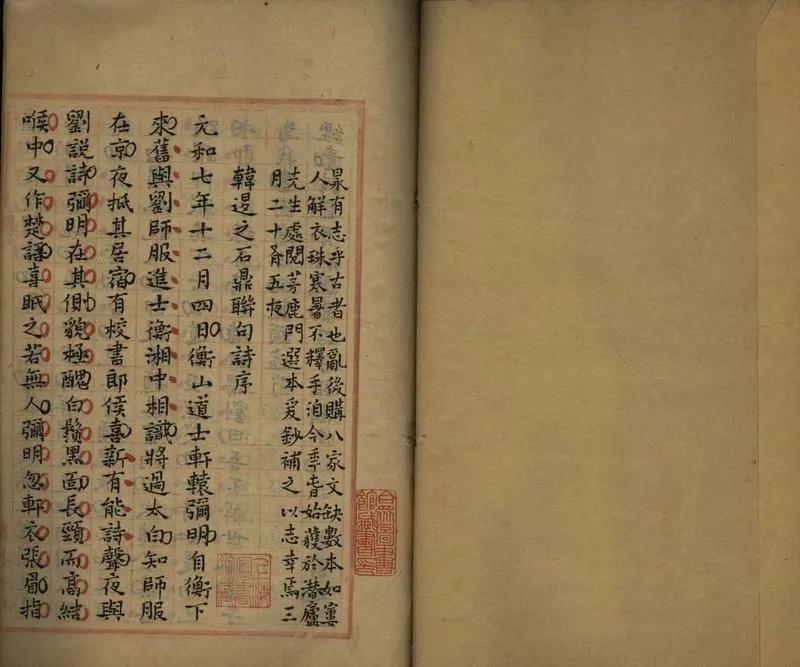 泉有志乎古者也亂後購八家文缺數本如窶
人解衣珠寒暑不釋手洎今季春始獲於潛廬
先生處閱茅鹿門選本爰鈔補之以志幸焉三
月二十有五夜
韓退之石鼎聯句詩序
元和七年十二月四日衡山道士軒轅彌明自衡下
來舊與劉師服進士衡湘中相識將過太白知師服
在京夜抵其居宿有校書郎侯喜新有能詩聲夜與
劉說詩彌明在其側貌極醜白鬚黑面長頸而高結
喉中又作楚語喜眂之若無人彌明忽軒衣張眉指